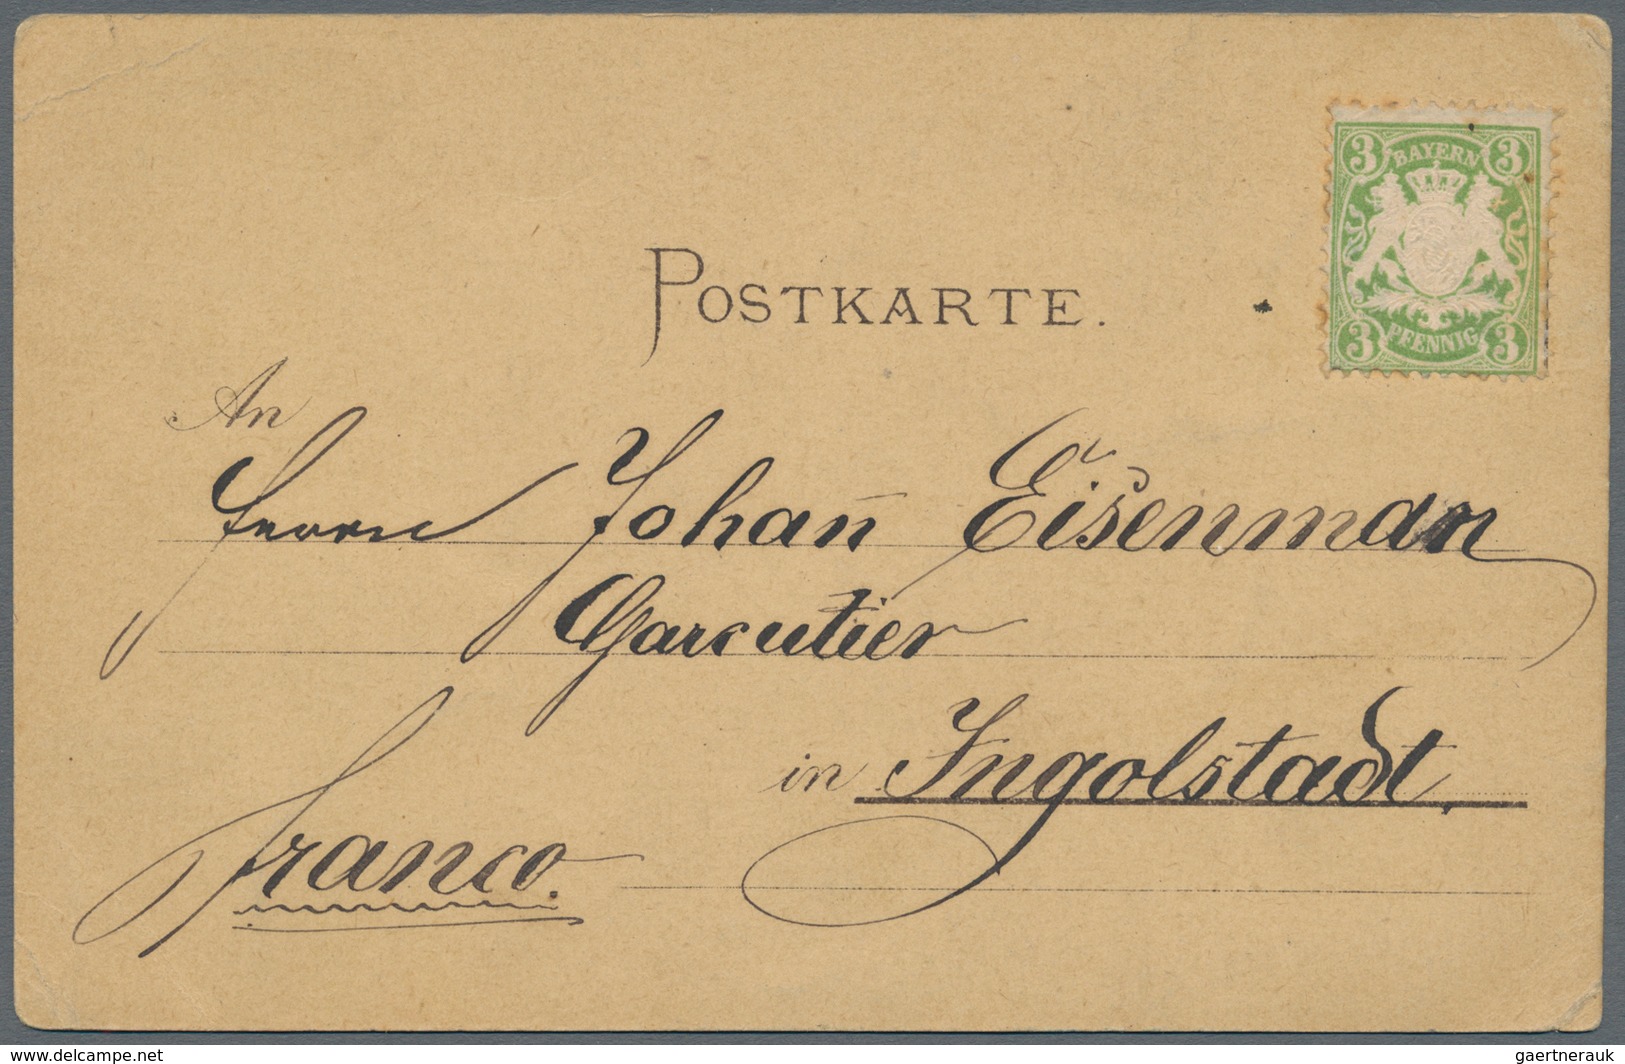 3 BAYERN 3
3 PFENNIG 3
POSTKARTE.
An
Herrn Johan̄ Eisenman
Charcutier
in Ingolstadt.
franco.
www.delcampe.net
gaertnerauk